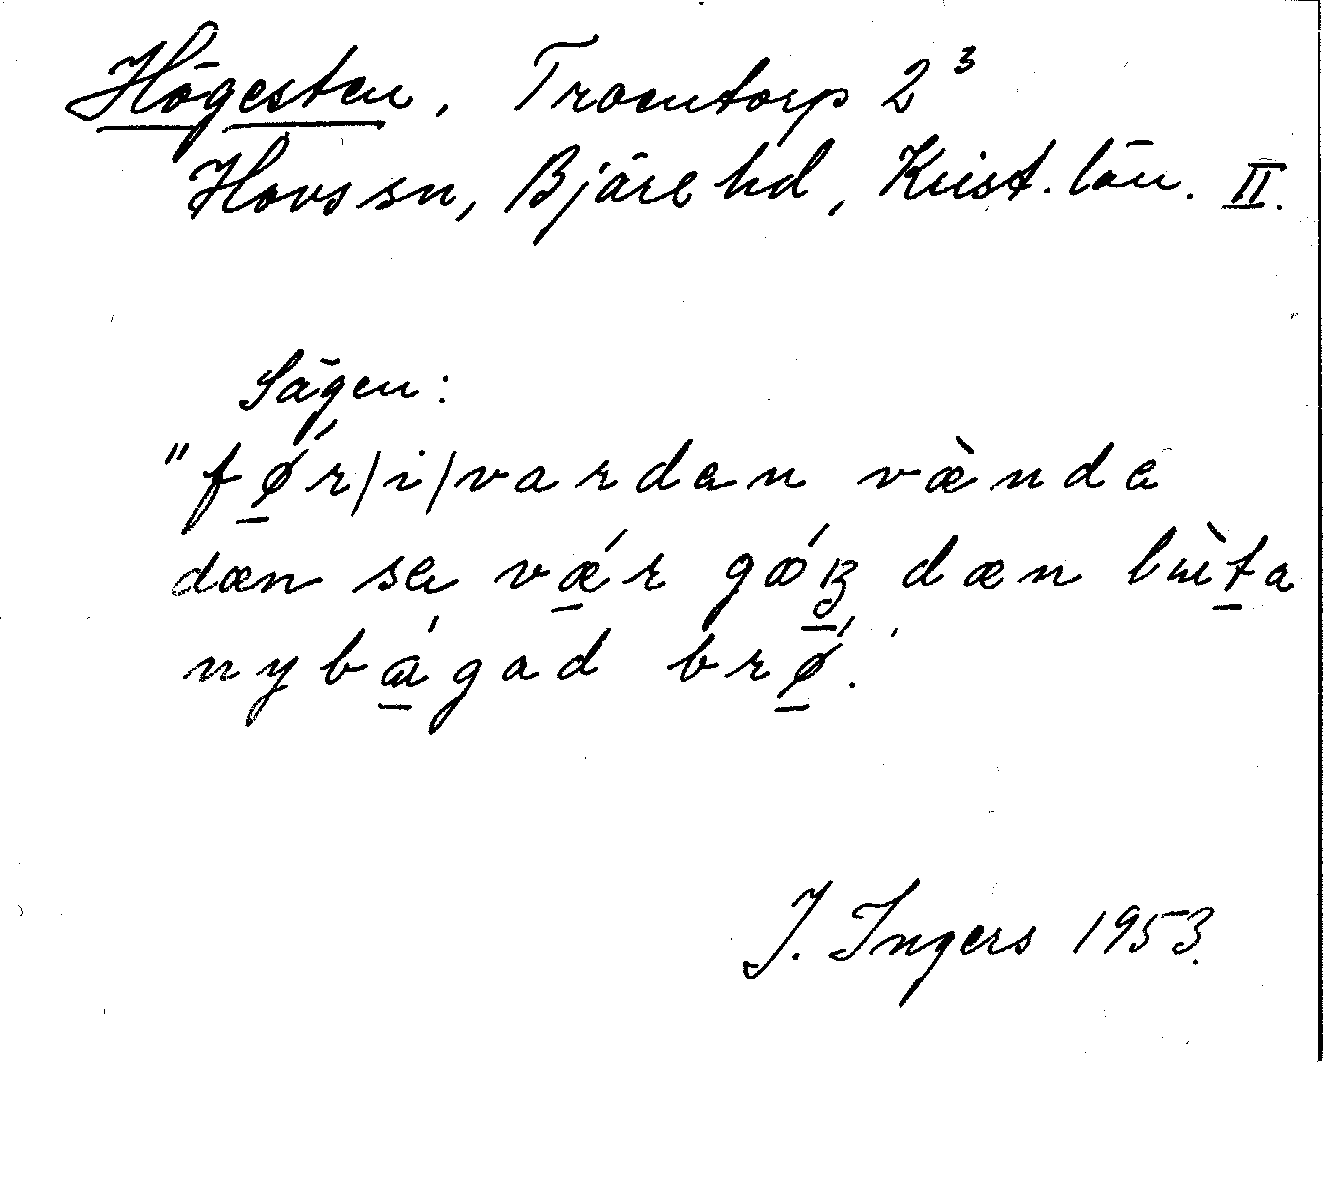 Högesten, Troentorp 2³
Hovs sn, Bjäre hd, Krist. län. II.
Sägen:
"fǿ̱r/i/vardan vænde
dæn sa vǽ̱r gǿʀ̱ dæn lùi̱ta
nybá̱gad brǿ̱."
J. Ingers 1953.